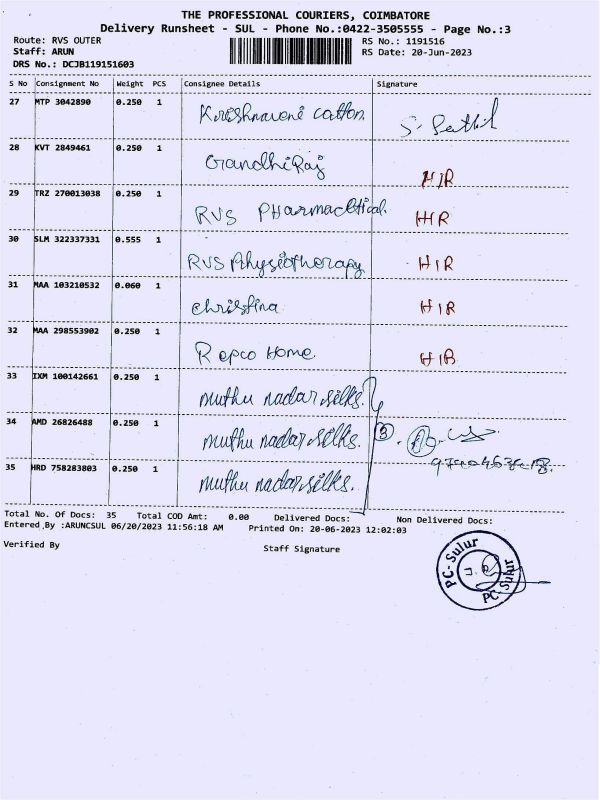 THE PROFESSIONAL COURIERS, COIMBATORE
Delivery Runsheet - SUL - Phone No.:0422-3505555 - Page No.:3
Route: RVS OUTER RS No.: 1191516
Staff: ARUN RS Date: 20-Jun-2023
DRS No.: DCJB119151603
S No Consignment No Weight PCS Consignee Details Signature
27 MTP 3042890 0.250 1 Krishnaveni cotton.
28 KVT 2849461 0.250 1 Gandhi Raj HIR
29 TRZ 270013038 0.250 1 RVS Pharmaceltical. HIR
30 SLM 322337331 0.555 1 RVS Physiotherapy HIR
31 MAA 103210532 0.060 1 christina HIR
32 MAA 298553902 0.250 1 Repco Home. HIR
33 IXM 100142661 0.250 1 muthu nadar silks.
34 AMD 26826488 0.250 1 muthu nadar silks. 3
35 HRD 758283803 0.250 1 muthu nadar silks.
Total No. Of Docs: 35 Total COD Amt: 0.00 Delivered Docs: Non Delivered Docs:
Entered By :ARUNCSUL 06/20/2023 11:56:18 AM Printed On: 20-06-2023 12:02:03
Verified By Staff Signature
PC-Sulur
PC-Sulur